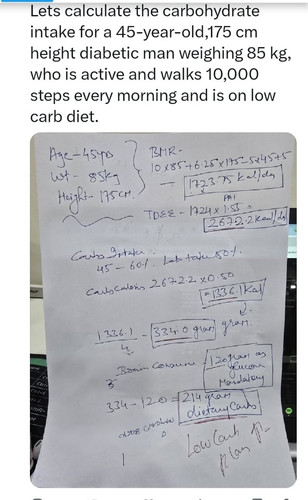 Lets calculate the carbohydrate
intake for a 45-year-old,175 cm
height diabetic man weighing 85 kg,
who is active and walks 10,000
steps every morning and is on low
carb diet.
Age-45yrs
Wt- 85kg
Height- 175cm
BMR-
10x85+6.25x175-5x45+5
1723.75 kcal/day
PAL
TDEE - 1724 x 1.55 =
2672.2 kcal/day
Carbs Intake
45-60% Lets take 50%.
Carbs calories 2672.2 x 0.50
=1336.1 kcal
1336.1
4
- 334.0 gram gram.
Brain consum
120 gram as
glucose
Mandatory
334-120=214 gram
dietary carbs
Low Carb
plan